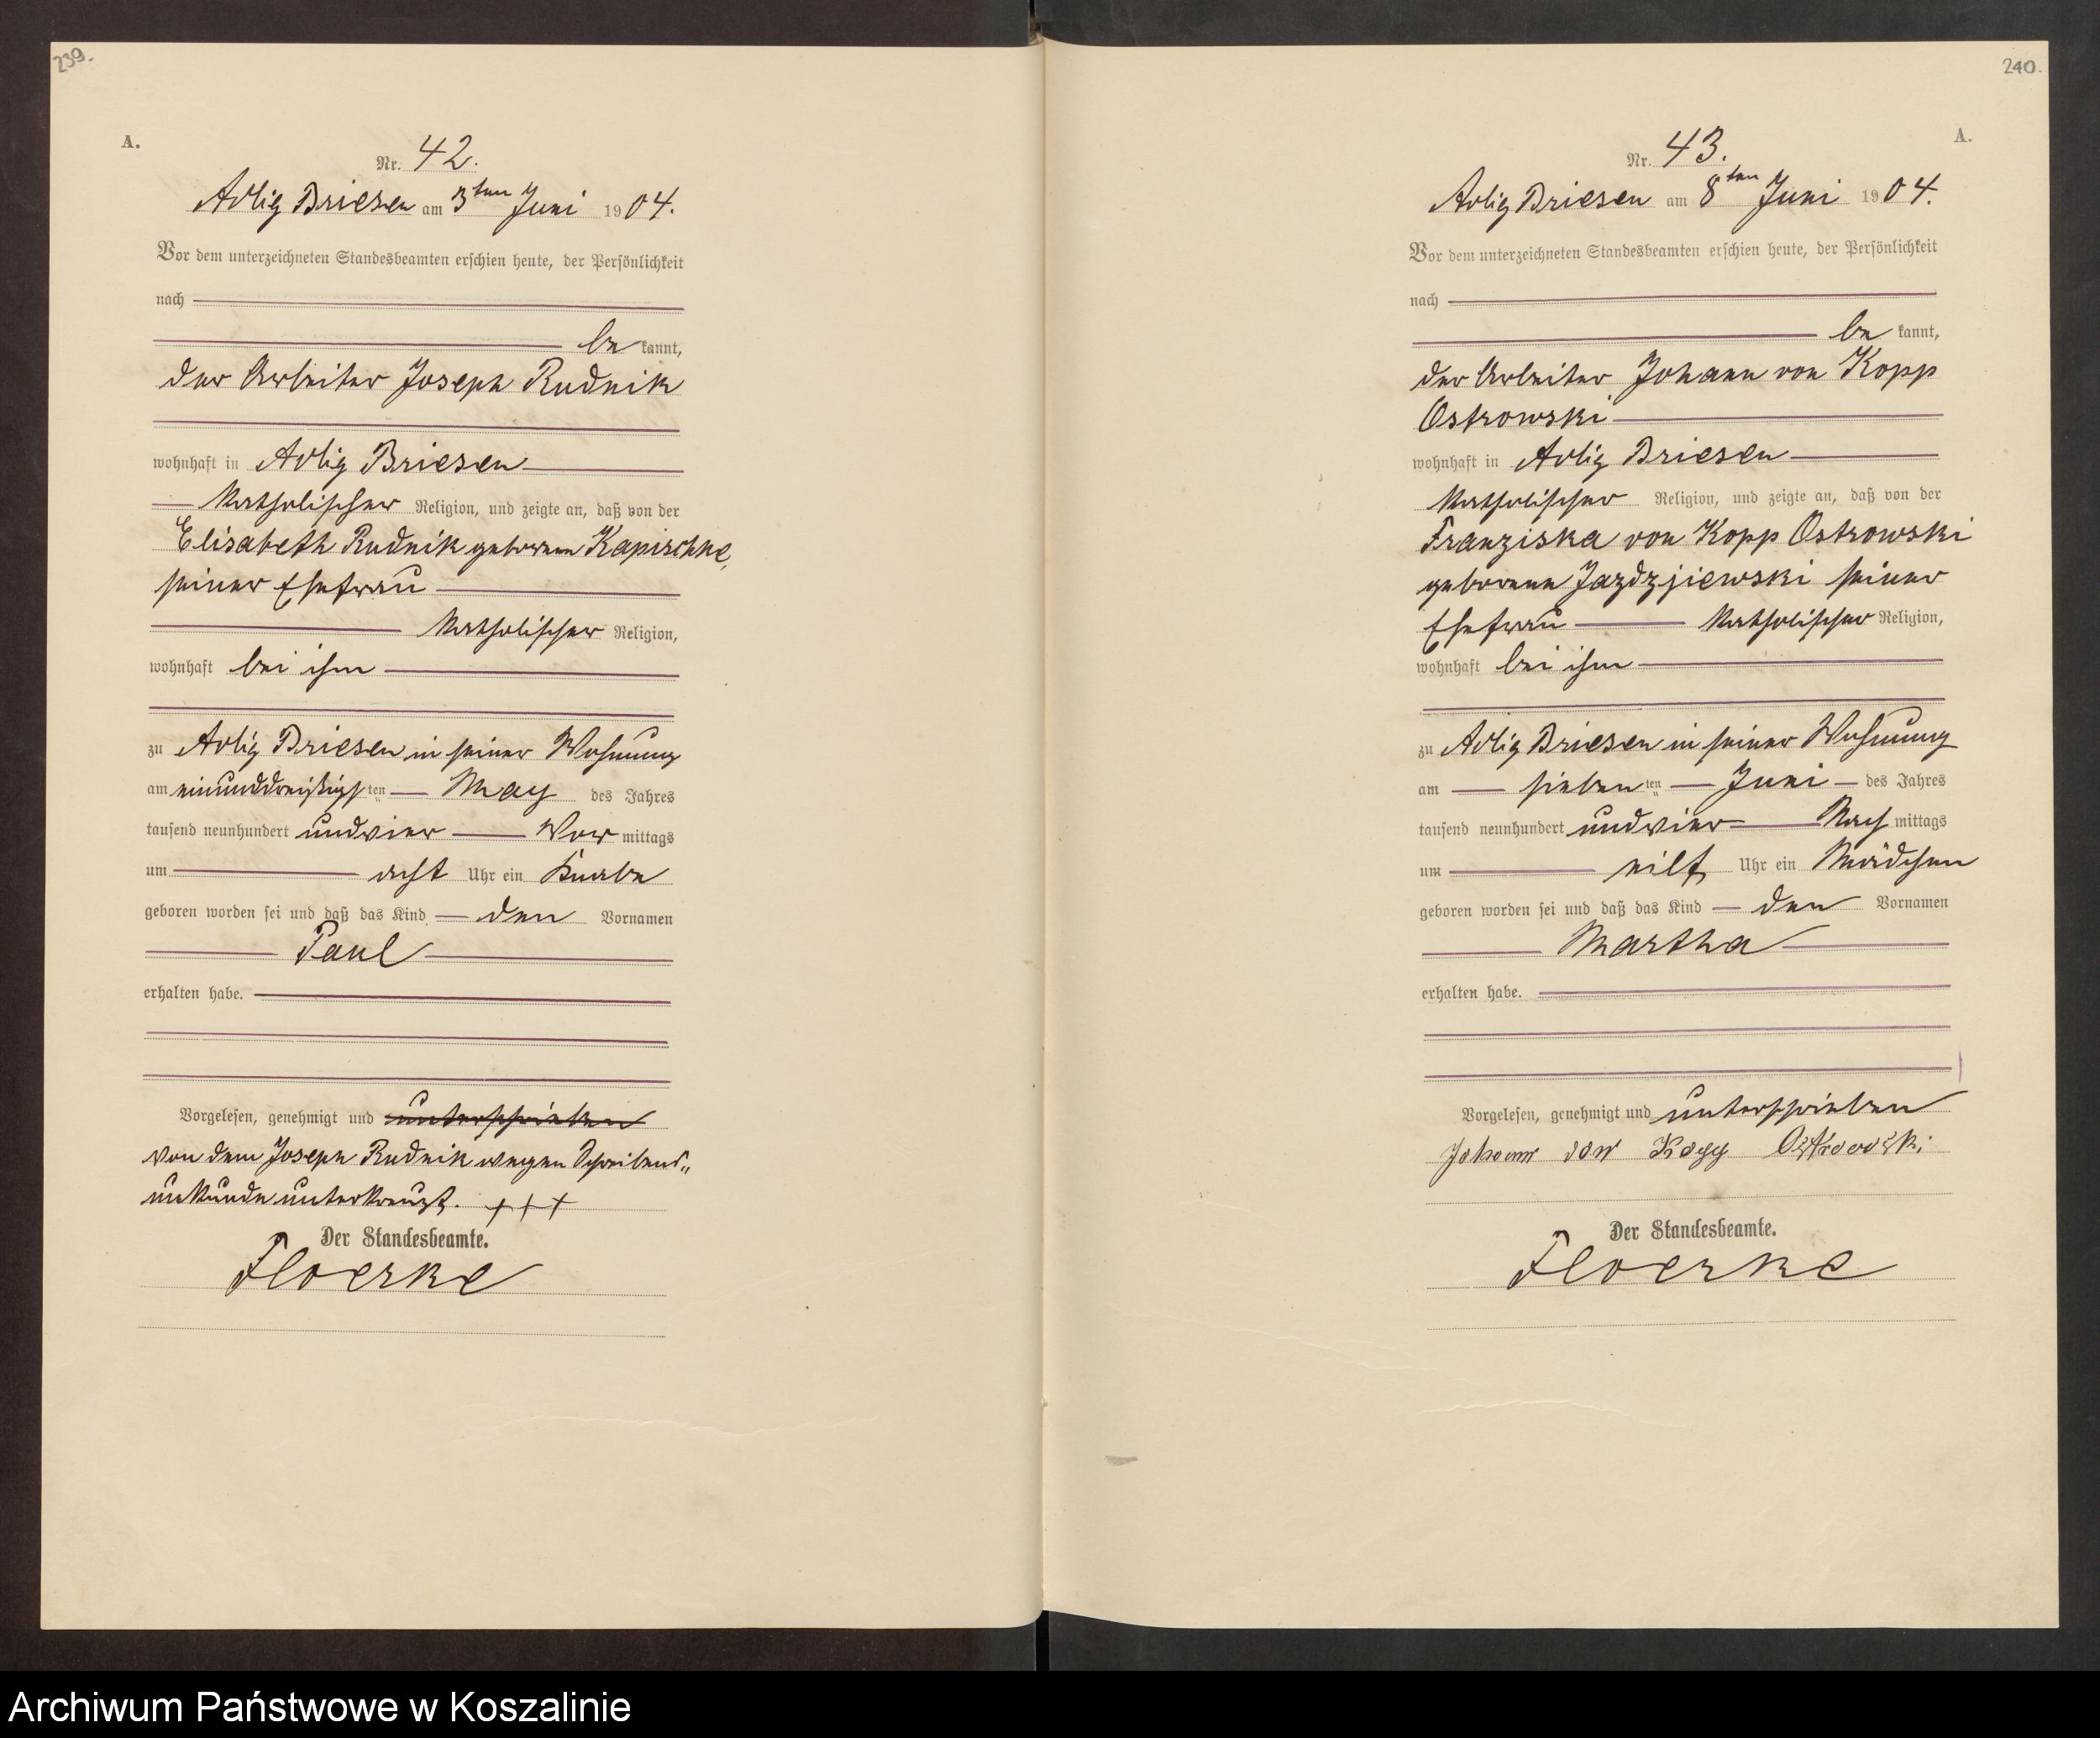 239.
A.
Nr. 42.
Adlig Briesen am 3ten Juni 1904.
Vor dem unterzeichneten Standesbeamten erschien heute, der Persönlichkeit
nach
be kannt,
der Arbeiter Joseph Rudnik
wohnhaft in Adlig Briesen
katholischer Religion, und zeigte an, daß von der
Elisabeth Rudnik geborenen Kapischke,
seiner Ehefrau
katholischer Religion,
wohnhaft bei ihm
zu Adlig Briesen in seiner Wohnung
am einunddreißigsten May des Jahres
tausend neunhundert undvier Vor mittags
um acht Uhr ein Knabe
geboren worden sei und daß das Kind den Vornamen
Paul
erhalten habe.
Vorgelesen, genehmigt und unterschrieben
von dem Joseph Rudnik wegen Schreibens„
unkunde unterkreuzt. +++
Der Standesbeamte.
Floerke
240.
A.
Nr. 43.
Adlig Briesen am 8ten Juni 1904.
Vor dem unterzeichneten Standesbeamten erschien heute, der Persönlichkeit
nach
be kannt,
der Arbeiter Johann von Kopp
Ostrowski
wohnhaft in Adlig Briesen
katholischer Religion, und zeigte an, daß von der
Franziska von Kopp Ostrowski
geborene Jazdzjiewski seiner
Ehefrau katholischer Religion,
wohnhaft bei ihm
zu Adlig Briesen in seiner Wohnung
am siebenten Juni des Jahres
tausend neunhundert undvier Nach mittags
um eilf Uhr ein Mädchen
geboren worden sei und daß das Kind den Vornamen
Martha
erhalten habe.
Vorgelesen, genehmigt und unterschrieben
Johann
Der Standesbeamte.
Floerke
Archiwum Państwowe w Koszalinie